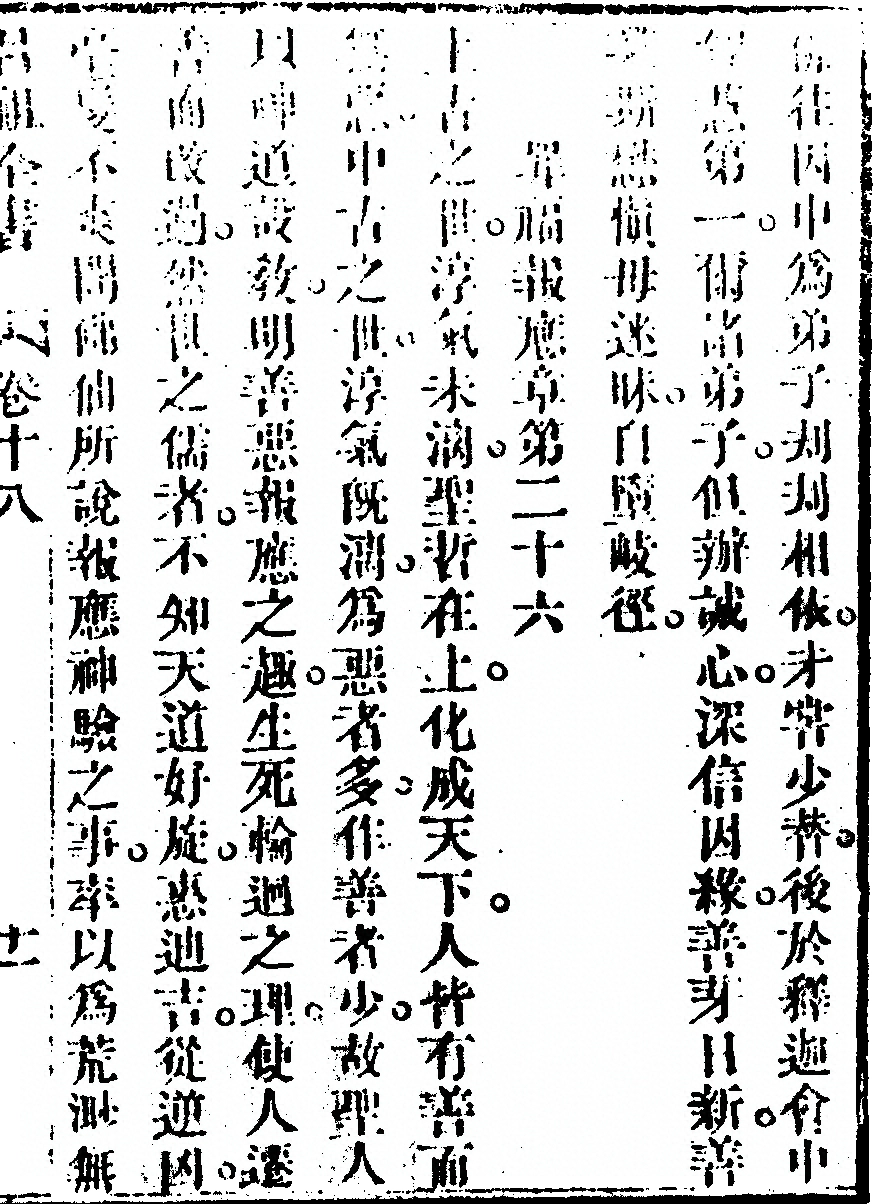 往因中爲弟子刦刦相依○未甞少替○後於釋迦會中
智慧第一○爾諸弟子○但辦誠心○深信因緣○善芽日新○善
果斯懋慎毋迷昧○自墮岐徑○
罪福報應章第二十六
上古之世○淳氣未漓○聖哲在上○化成天下○人皆有善而
無惡○中古之世○淳氣既漓○爲惡者多○作善者少○故聖人
以神道設教○明善惡報應之趣○生死輪迴之理○使人遷
善而改過○然世之儒者○不知天道好旋○惠迪吉○從逆凶○
常變不爽聞佛仙所說報應神驗之事○率以爲荒渺無
呂祖全書 卷十八 十一